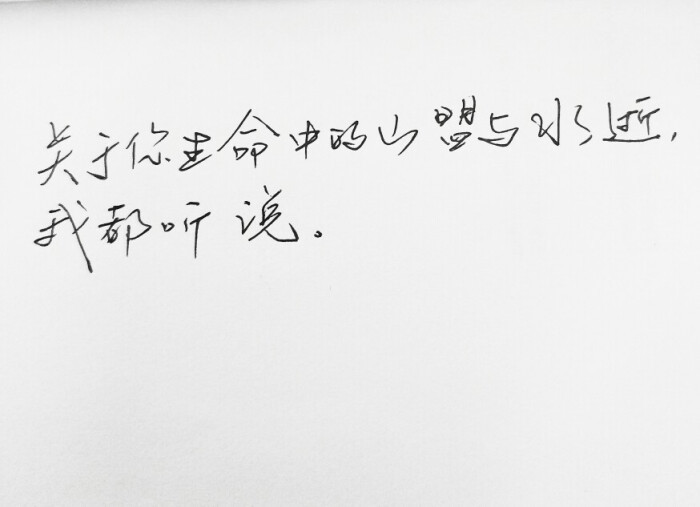 关于你生命中的山盟与水逝，
我都听说。